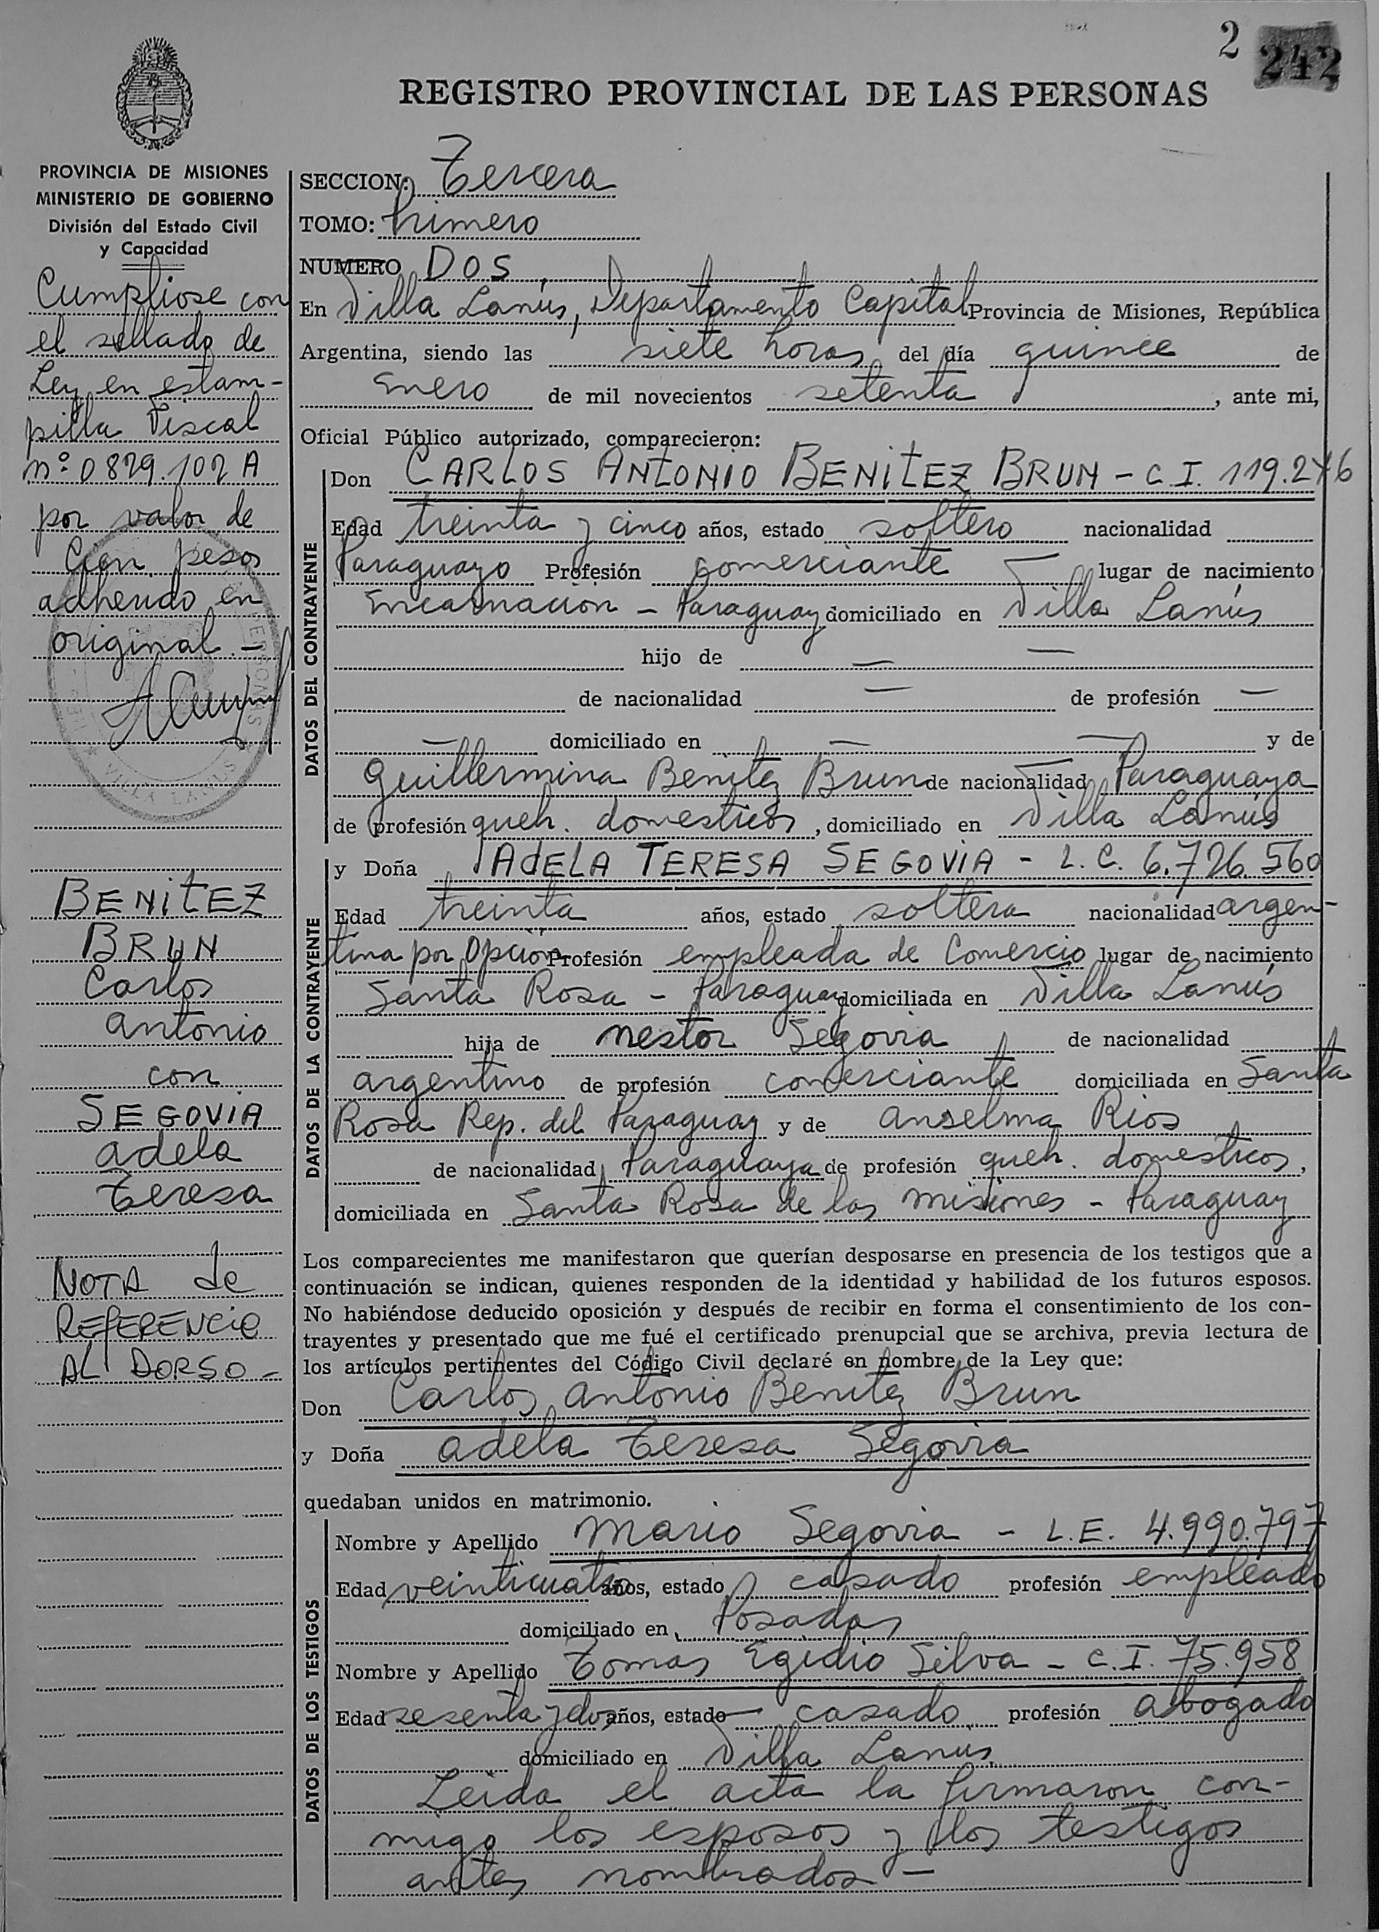 2 242
REGISTRO PROVINCIAL DE LAS PERSONAS
PROVINCIA DE MISIONES
MINISTERIO DE GOBIERNO
División del Estado Civil
y Capacidad
Cumpliose con
el sellado de
Ley en estam-
pilla Fiscal
nº 0829.102 A
por valor de
Cien pesos
adherido en
original.-
VILLA LANUS
BENITEZ
BRUN
Carlos
Antonio
con
SEGOVIA
Adela
Teresa
NOTA de
REFERENCIA
AL DORSO-
SECCION: Tercera
TOMO: Primero
NUMERO DOS
En Villa Lanús, Departamento Capital Provincia de Misiones, República
Argentina, siendo las siete horas del día quince de
Enero de mil novecientos setenta, ante mi,
Oficial Público autorizado, comparecieron:
DATOS DEL CONTRAYENTE
Don CARLOS ANTONIO BENITEZ BRUN - C.I. 119.276
Edad treinta y cinco años, estado soltero nacionalidad
Paraguayo Profesión comerciante lugar de nacimiento
Encarnacion - Paraguay domiciliado en Villa Lanús
hijo de —
de nacionalidad — de profesión —
— domiciliado en — y de
Guillermina Benitez Brun de nacionalidad Paraguaya
de profesión queh. domesticos, domiciliado en Villa Lanús
DATOS DE LA CONTRAYENTE
y Doña ADELA TERESA SEGOVIA - L.C. 6.726.560
Edad treinta años, estado soltera nacionalidad argen-
tina por Opción Profesión empleada de Comercio lugar de nacimiento
Santa Rosa - Paraguay domiciliada en Villa Lanús
hija de Nestor Segovia de nacionalidad
argentino de profesión comerciante domiciliada en Santa
Rosa Rep. del Paraguay y de Anselma Rios
de nacionalidad Paraguaya de profesión queh. domesticos,
domiciliada en Santa Rosa de las Misiones - Paraguay
Los comparecientes me manifestaron que querían desposarse en presencia de los testigos que a
continuación se indican, quienes responden de la identidad y habilidad de los futuros esposos.
No habiéndose deducido oposición y después de recibir en forma el consentimiento de los con-
trayentes y presentado que me fué el certificado prenupcial que se archiva, previa lectura de
los artículos pertinentes del Código Civil declaré en nombre de la Ley que:
Don Carlos Antonio Benitez Brun
y Doña Adela Teresa Segovia
quedaban unidos en matrimonio.
DATOS DE LOS TESTIGOS
Nombre y Apellido Mario Segovia - L.E. 4.990.797
Edad veinticuatro años, estado casado profesión empleado
domiciliado en Posadas
Nombre y Apellido Tomas Egidio Silva - C.I. 75.958
Edad sesenta y dos años, estado casado profesión abogado
domiciliado en Villa Lanus
Leida el acta la firmaron con-
migo los esposos y los testigos
antes nombrados -